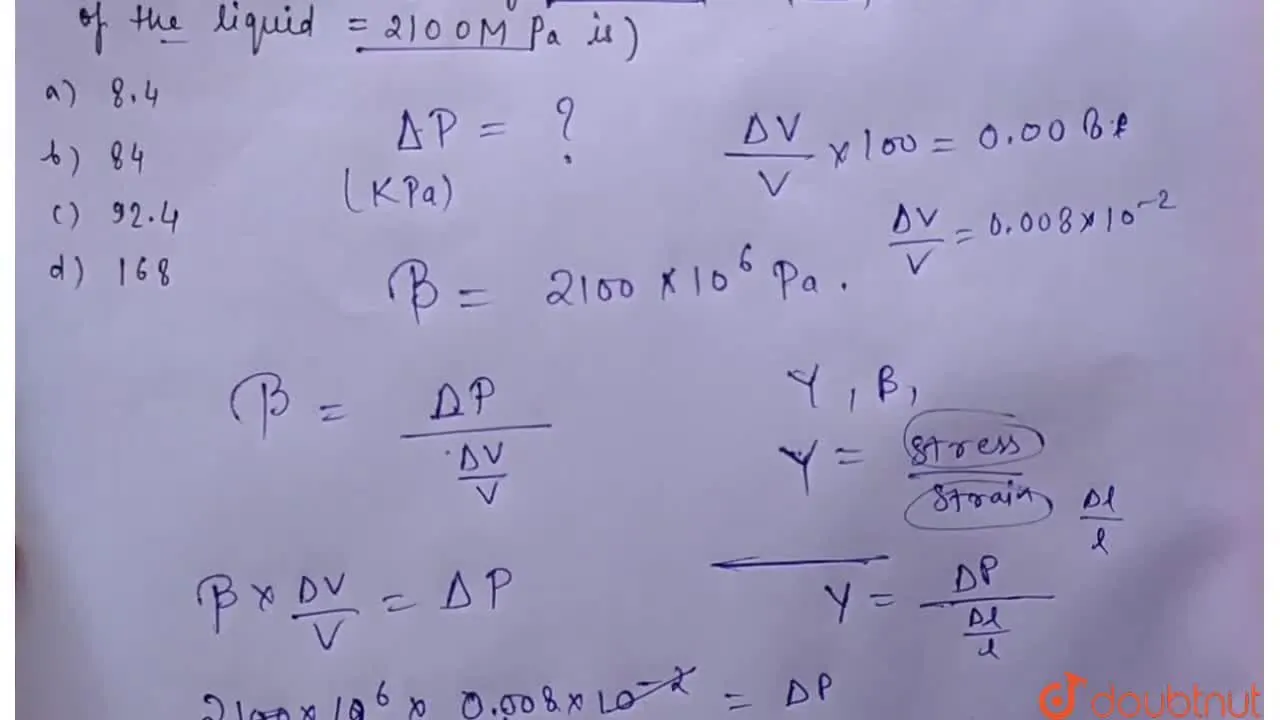 of the liquid = 2100M Pa is)
a) 8.4
b) 84
c) 92.4
d) 168
ΔP = ?
(KPa)
ΔV/V × 100 = 0.008
ΔV/V = 0.008 × 10⁻²
B = 2100 × 10⁶ Pa.
B = ΔP / (ΔV/V)
Y, B,
Y = stress / strain Δl/l
B × ΔV/V = ΔP
Y = ΔP / (Δl/l)
2100 × 10⁶ × 0.008 × 10⁻² = ΔP
doubtnut